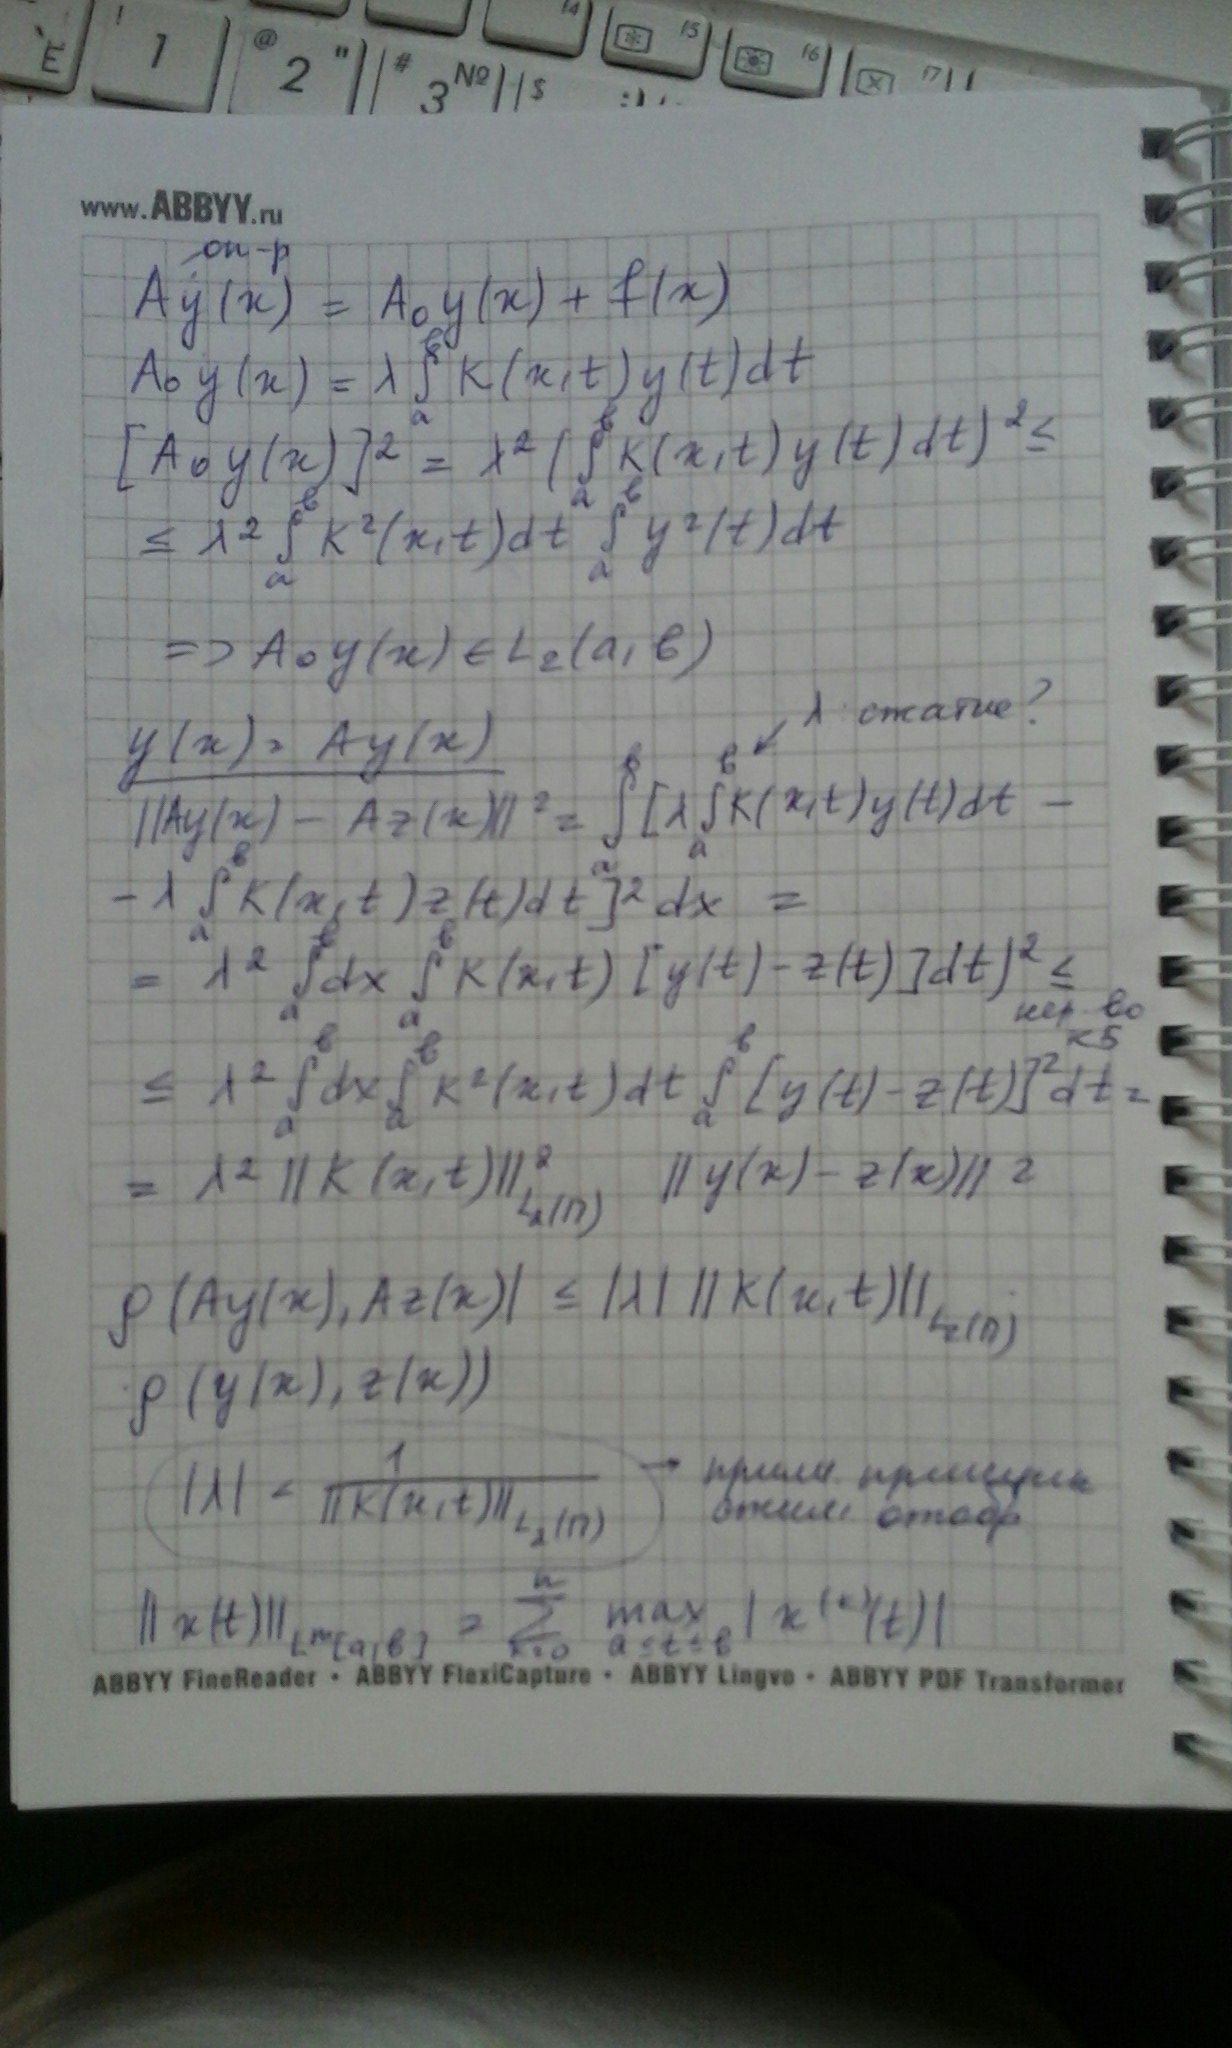 Ё 1 @ 2 " # 3 № $ 14 15 16 17
www.ABBYY.ru
оп-р
Ay(x) = A₀y(x) + f(x)
A₀y(x) = λ∫ₐᵇ K(x,t)y(t)dt
[A₀y(x)]² = λ²(∫ₐᵇ K(x,t)y(t)dt)² ≤
≤ λ² ∫ₐᵇ K²(x,t)dt ∫ₐᵇ y²(t)dt
=> A₀y(x) ∈ L₂(a,b)
λ сжатие?
y(x) = Ay(x)
||Ay(x) - Az(x)||² = ∫ₐᵇ[λ∫ₐᵇ K(x,t)y(t)dt -
- λ∫ₐᵇ K(x,t)z(t)dt]²dx =
= λ² ∫ₐᵇ dx ∫ₐᵇ K(x,t)[y(t)-z(t)]dt)² ≤
нер-во
КБ
≤ λ² ∫ₐᵇ dx ∫ₐᵇ K²(x,t)dt ∫ₐᵇ [y(t)-z(t)]²dt =
= λ² ||K(x,t)||²_L₂(П) ||y(x)-z(x)||²
ρ(Ay(x),Az(x)) ≤ |λ| ||K(x,t)||_L₂(П)
ρ(y(x),z(x))
|λ| < 1/||K(x,t)||_L₂(П) → прим. принцип
сжим. отобр
||x(t)|| [a,b] = Σ max a≤t≤b |x⁽ᵏ⁾(t)|
ABBYY FineReader • ABBYY FlexiCapture • ABBYY Lingvo • ABBYY PDF Transformer